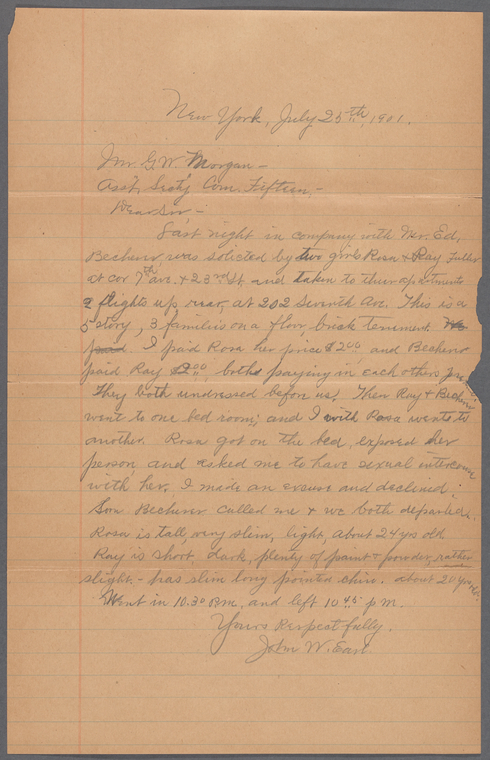 New York, July 25th, 1901.
Mr. G. W. Morgan -
Asst. Secty Com. Fifteen, -
Dear Sir -
Last night in company with Mr. Ed,
Becherer, was solicited by two girls Rosa & Ray Fuller
at cor 7th ave. & 23rd St. and taken to their apartments
2 flights up rear, at 202 Seventh Ave. This is a
5 story, 3 families on a floor, brick tenement. We
paid I paid Rosa her price $2.00 and Becherer
paid Ray $2.00 both paying in each others
They both undressed before us. Then Ray & Becherer
went to one bed room; and I with Rosa went to
another. Rosa got on the bed, exposed her
person, and asked me to have sexual intercourse
with her. I made an excuse and declined.
Son Becherer called me & we both departed.
Rosa is tall, very slim, light, about 24 yrs old
Ray is short, dark, plenty of paint & powder, rather
slight - has slim long pointed chin. about 20 yrs
Went in 10.30 P.M., and left 10 45 p m.
Yours Respectfully.
John W. Earl